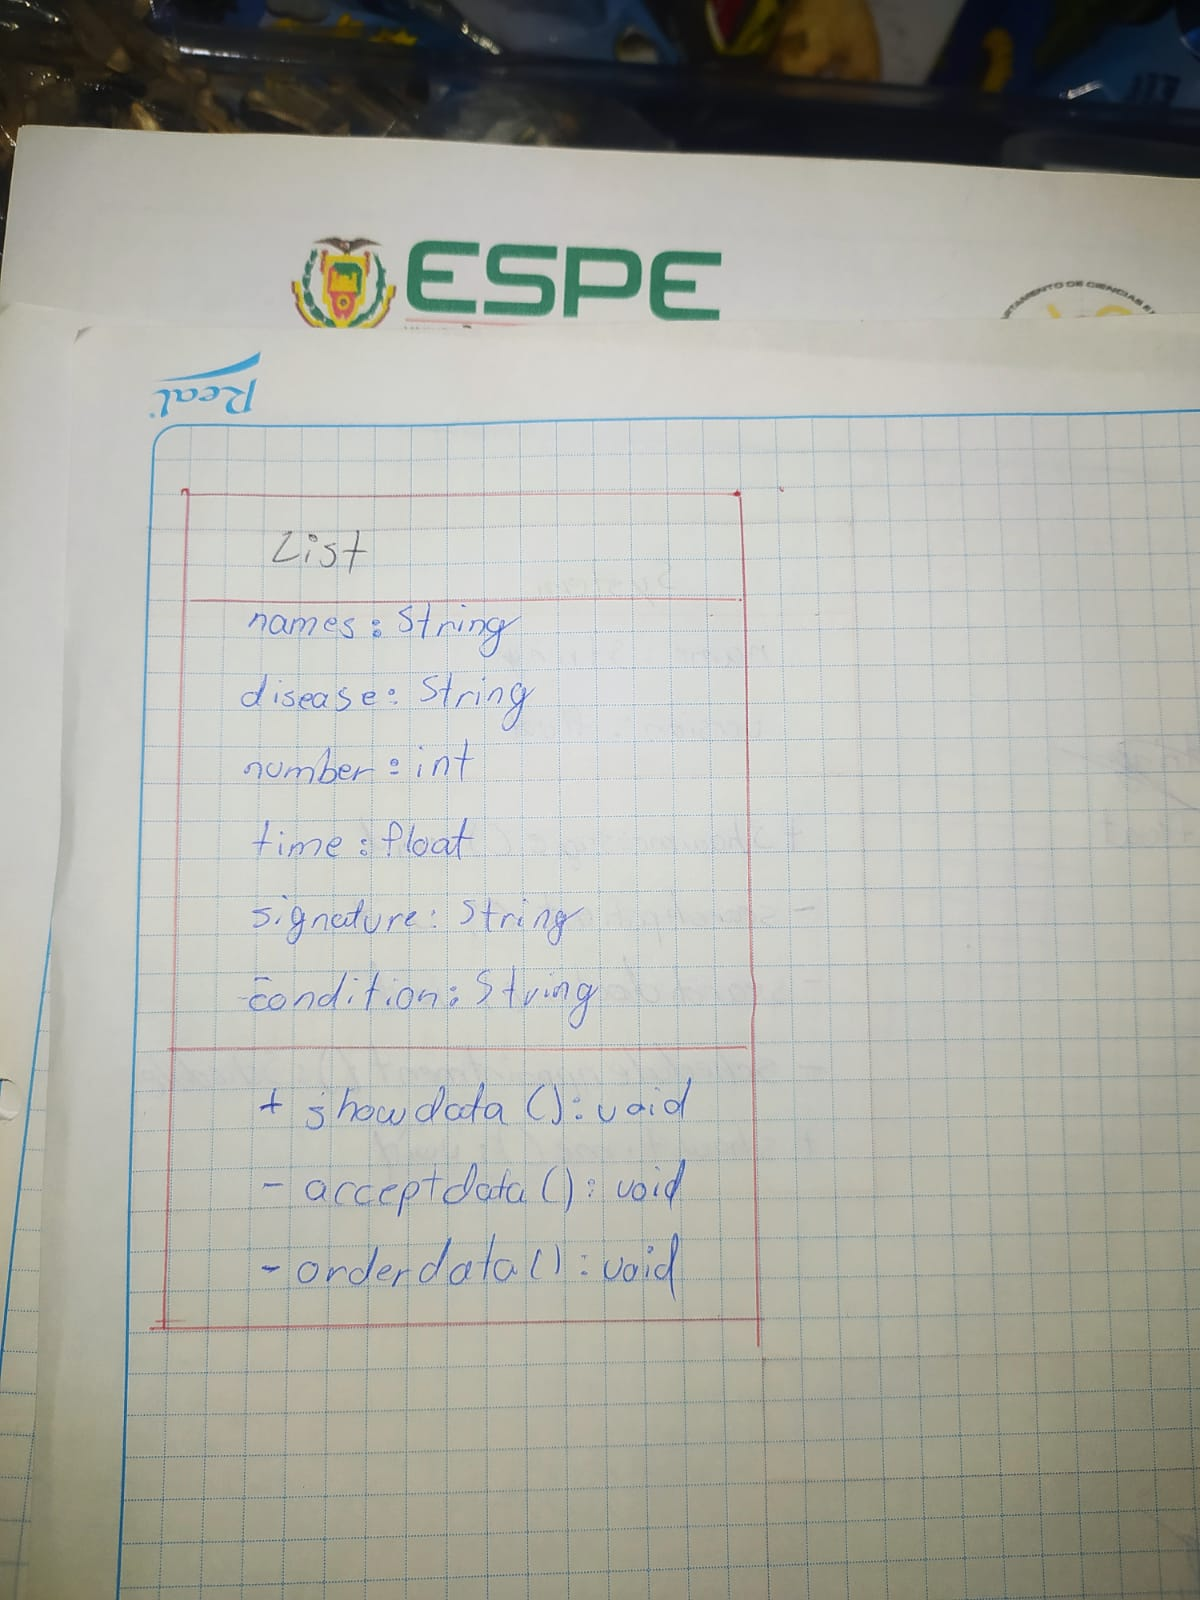 ESPE
TAMENTO DE CIENCIAS
Real
List
names: String
disease: String
number: int
time: float
signature: String
condition: String
+ showdata (): void
- acceptdata (): void
- orderdata (): void